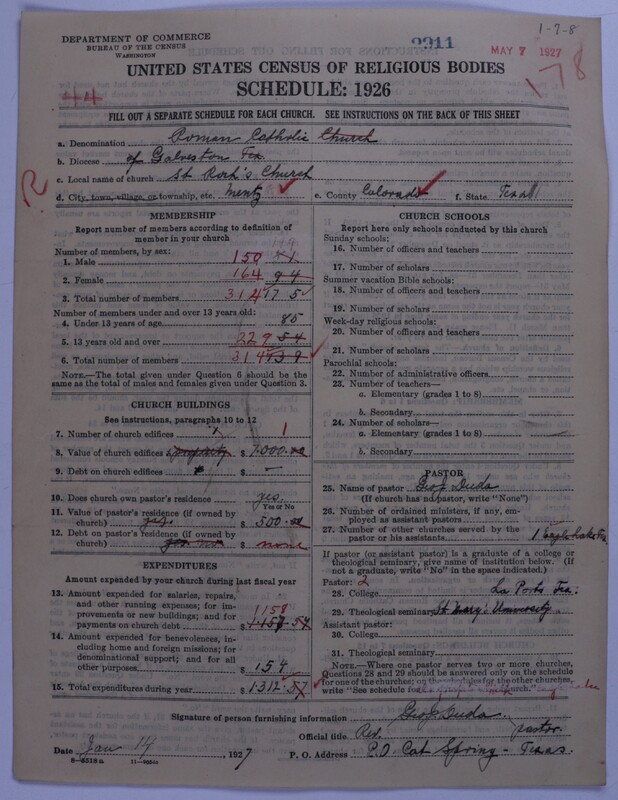 1-7-8
DEPARTMENT OF COMMERCE
BUREAU OF THE CENSUS
WASHINGTON
2911
MAY 7 1927
178
UNITED STATES CENSUS OF RELIGIOUS BODIES
SCHEDULE: 1926
44
FILL OUT A SEPARATE SCHEDULE FOR EACH CHURCH. SEE INSTRUCTIONS ON THE BACK OF THIS SHEET
a. Denomination Roman Catholic Church
b. Diocese of Galveston Tex.
c. Local name of church St Roch's Church
R
d. City, town, village, or township, etc. Mentz e. County Colorado f. State Texas
MEMBERSHIP
Report number of members according to definition of member in your church
Number of members, by sex:
1. Male 150
2. Female 164 94
3. Total number of members 314 175
Number of members under and over 13 years old:
4. Under 13 years of age 85
5. 13 years old and over 229 54
6. Total number of members 314 139
NOTE.—The total given under Question 6 should be the same as the total of males and females given under Question 3.
CHURCH BUILDINGS
See instructions, paragraphs 10 to 12
7. Number of church edifices 1 1
8. Value of church edifices & property $ 7.000.00
9. Debt on church edifices $ —
10. Does church own pastor's residence yes.
Yes or No
11. Value of pastor's residence (if owned by church) yes. $ 500.00
12. Debt on pastor's residence (if owned by church) $ none
EXPENDITURES
Amount expended by your church during last fiscal year
13. Amount expended for salaries, repairs, and other running expenses; for improvements or new buildings; and for payments on church debt $ 1158 1157.57
14. Amount expended for benevolences, including home and foreign missions; for denominational support; and for all other purposes $ 154
15. Total expenditures during year $ 1312.57
CHURCH SCHOOLS
Report here only schools conducted by this church
Sunday schools:
16. Number of officers and teachers
17. Number of scholars
Summer vacation Bible schools:
18. Number of officers and teachers
19. Number of scholars
Week-day religious schools:
20. Number of officers and teachers
21. Number of scholars
Parochial schools:
22. Number of administrative officers
23. Number of teachers—
a. Elementary (grades 1 to 8)
b. Secondary
24. Number of scholars—
a. Elementary (grades 1 to 8)
b. Secondary
PASTOR
25. Name of pastor Geo J. Duda
(If church has no pastor, write "None")
26. Number of ordained ministers, if any, employed as assistant pastors
27. Number of other churches served by the pastor or his assistants 1 Eagle Lake Tex
If pastor (or assistant pastor) is a graduate of a college or theological seminary, give name of institution below. (If not a graduate, write "No" in the space indicated.)
Pastor: 2
28. College La Porte Tex.
29. Theological seminary St Mary's University
Assistant pastor:
30. College
31. Theological seminary
NOTE.—Where one pastor serves two or more churches, Questions 28 and 29 should be answered only on the schedule for one of the churches; on the schedules for the other churches, write "See schedule for church."
Signature of person furnishing information Geo J. Duda
Official title Rev. pastor
Date Jan 14, 1927
P. O. Address P.O. Cat Spring - Texas.
8-5518 a 11-9824